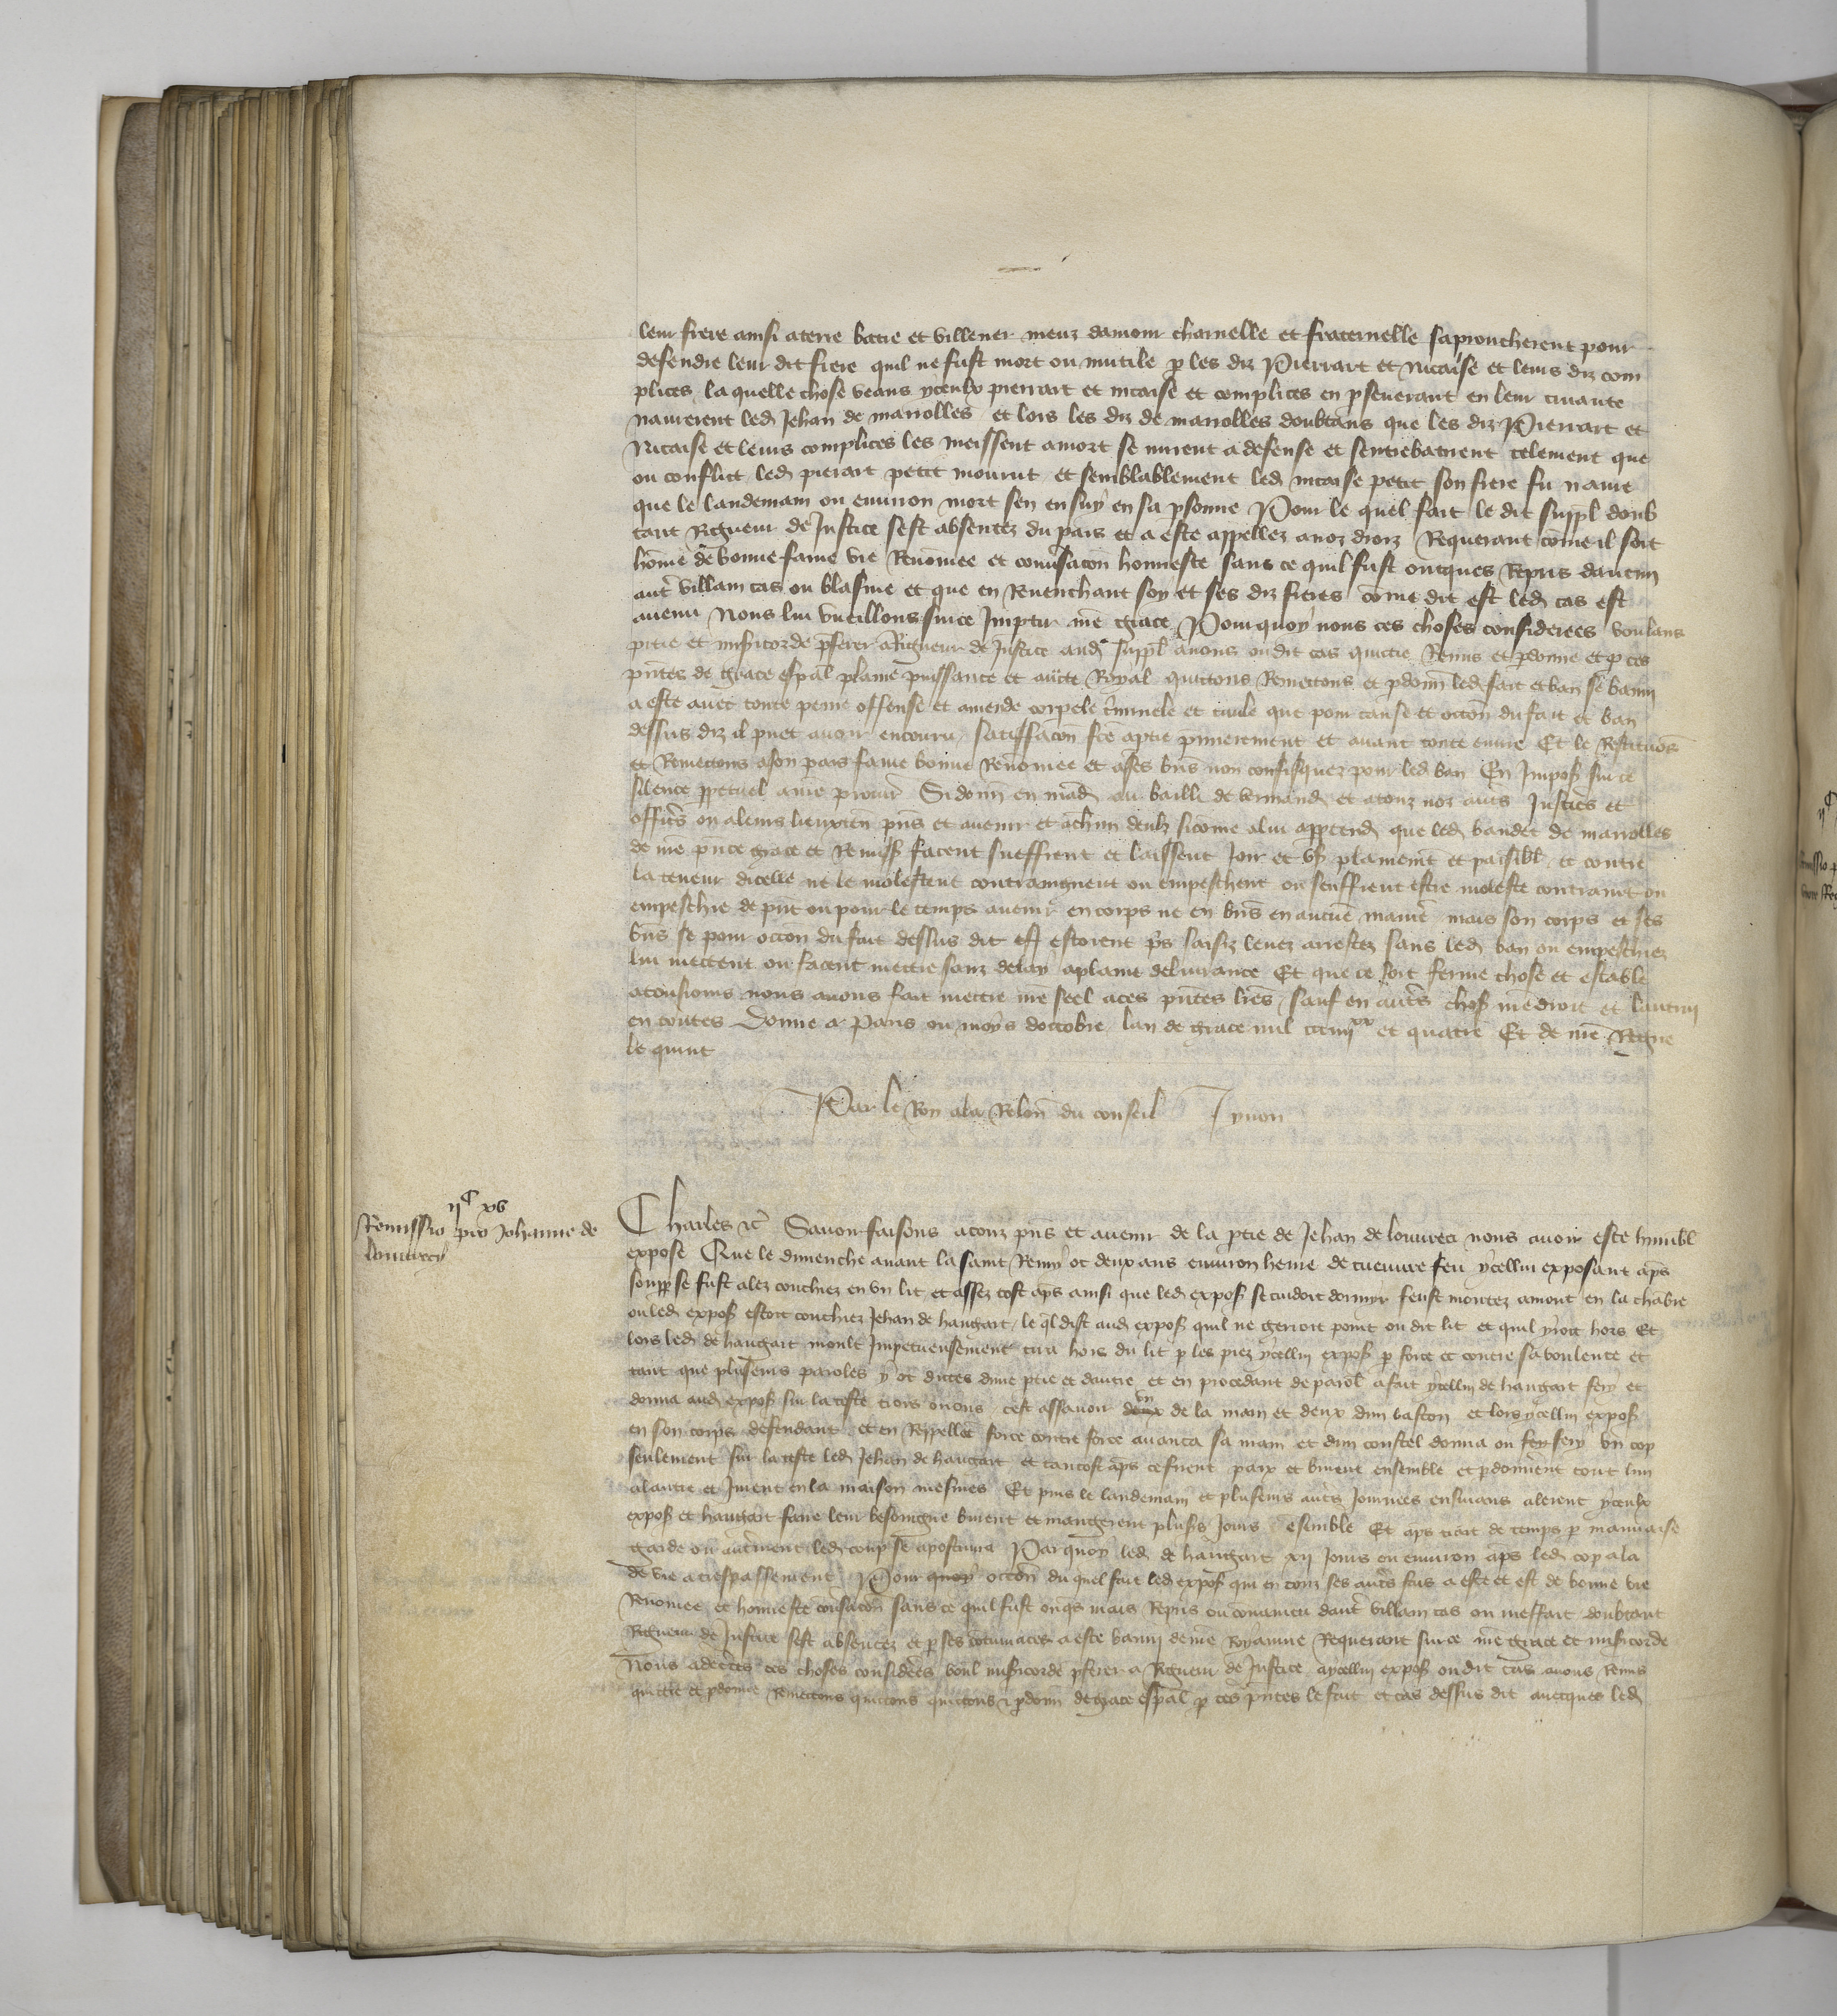 leur frere ainsi aterre batre et villener meuz damour charnelle et fraternelle saproucherent pour
defendre leur dit frere quil ne fust mort ou mutile p les diz Pierrart et Nicaise et leurs diz com
plices la quelle chose veans yceulx pierrart et nicaise et complices en pseuerant en leur
naurerent led Jehan de marolles et lors les diz de marolles doubtans que les diz Pierrart et
Nicaise et leurs complices les meissent a mort se mirent a defense et sentrebatirent telement que
ou conflict led pierart petit mourut et semblablement led nicaise petit son frere fu naure
que le landemain ou enuiron mort sen ensuy en sa psonne Pour le quel fait le dit suppl doub
tant Rigueur de Justice sest absentez du pais et a este appellez a noz droiz Requerant come il soit
home de bonne fame vie Renomee et conusacon honneste sans ce quil fust oncques Repris daucun
aut villain cas ou blasme et que en Reuenchant soy et ses diz freres come dit est led cas est
auenu Nous lui vueillons sur ce Impartir nre grace Pourquoy nous ces choses considerees voulans
pitie et misicorde pferer a Rigueur de Justice aud suppl auons ou dit cas quictie Remis et pdonne et p ces
pntes de grace espal plaine puissance et auctte Royal quictons Remectons et pdonn led fait et ban se banni
a este auec toute peine offense et amende corpele criminele et ciuile que pour cause et occon du fait et ban
dessus diz il puet auoir encouru satiffacon fce aptie pmierement et auant toute euure Et le Restituons
et Remectons a son pais fame bonne Renomee et a ses bns non confisquez pour led ban En Impos sur ce
silence ppetuel a nre procur Si donn en mand au bailli de vermand et a touz noz auts Justicrs et
officrs ou a leurs lieuxten pns et auenir et a chun deulx sicome a lui apptend que led baudet de marolles
de nre pnte grace et Remiss facent sueffrent et laissent Joir et vs plainemt et paisibl et contre
la teneur dicelle ne le molestent contraingnent ou empeschent ou seuffrent estre moleste contraint ou
empeschie de pnt ou pour le temps auenir en corps ne en bns en aucune maniere mais son corps et ses
bns se pour occon du fait dessus dit estoient pris saisiz leuez arrestez sans led ban ou empeschiez
lui mectent ou facent mectre sanz delay a plaine deliurance Et que ce soit ferme chose et estable
a tousiours nous auons fait mectre nre seel a ces pntes lres Sauf en auts chos nre droit et lautrui
en toutes Donne a Paris ou moys doctobre lan de grace mil ccc iiij xx et quatre Et de nre Regne
le quint
Par le Roy a la Relon du conseil Jyuon
ij C xv
Remissio pro Johanne de
louuecy
Charles &c Sauoir faisons a touz pns et auenir de la ptie de Jehan de louureci nous auoir este humbl
expose Que le dimenche auant la saint Remy ot deux ans enuiron heure de cueuure feu ycellui exposant aps
soupp se fust alez couchiez en vn lit et assez tost aps ainsi que led expos se cuidoit dormir feust montez amont en la chabre
ou led expos estoit couchiez Jehan de haugart le ql dist aud expos quil ne gerroit point ou dit lit et quil yroit hors Et
lors led de haugart moult Impetueusement tira hors du lit p les piez ycellui expos p force et contre sa voulente et
tant que plusieurs paroles y ot dictes dune ptie et dautre et en procedant de parol a fait ycellui de haugart fery et
donna aud expos sur la teste trois orions cest assauoir deux vn de la main et deux dun baston et lors ycellui expos
en son corps defendant et en Reppellet force contre force auanca sa main et dun coustel donna ou fey fery vn cop
seulement sur la teste led Jehan de haugart et tantost aps ce firent paix et burent ensemble et pdonnerent tout lun
a lautre et Jurent en la maison mesmes Et puis le landemain et plusieurs auts Journees ensuiuans alerent yceulx
expos et haugart faire leur besoingne burent et mangerent plusrs Jours esemble Et aps trait de temps p mauuaise
garde ou autrement led coup se apostuma Par quoy led de haugart xij Jours ou enuiron aps led cop ala
de vie a trespassement Pour quoy occon du quel fait led expos qui en touz ses auts fais a este et est de bonne vie
Renomee et honneste conusacon sans ce quil fust onqs mais Repris ou conuaincu daut villain cas ou meffait doubtant
Rigueur de Justice sest absentez et p ses contumaces a este banni de nre Royaume Requerant sur ce nre grace et misicorde
Nous adecrtes ces choses considers voul misicorde pferer a Rigueur de Justice a ycellui expos ou dit cas auons Remis
quictie et pdonne Remectons quictons quictons & pdonn de grace espal p ces pntes le fait et cas dessus dit auecques led